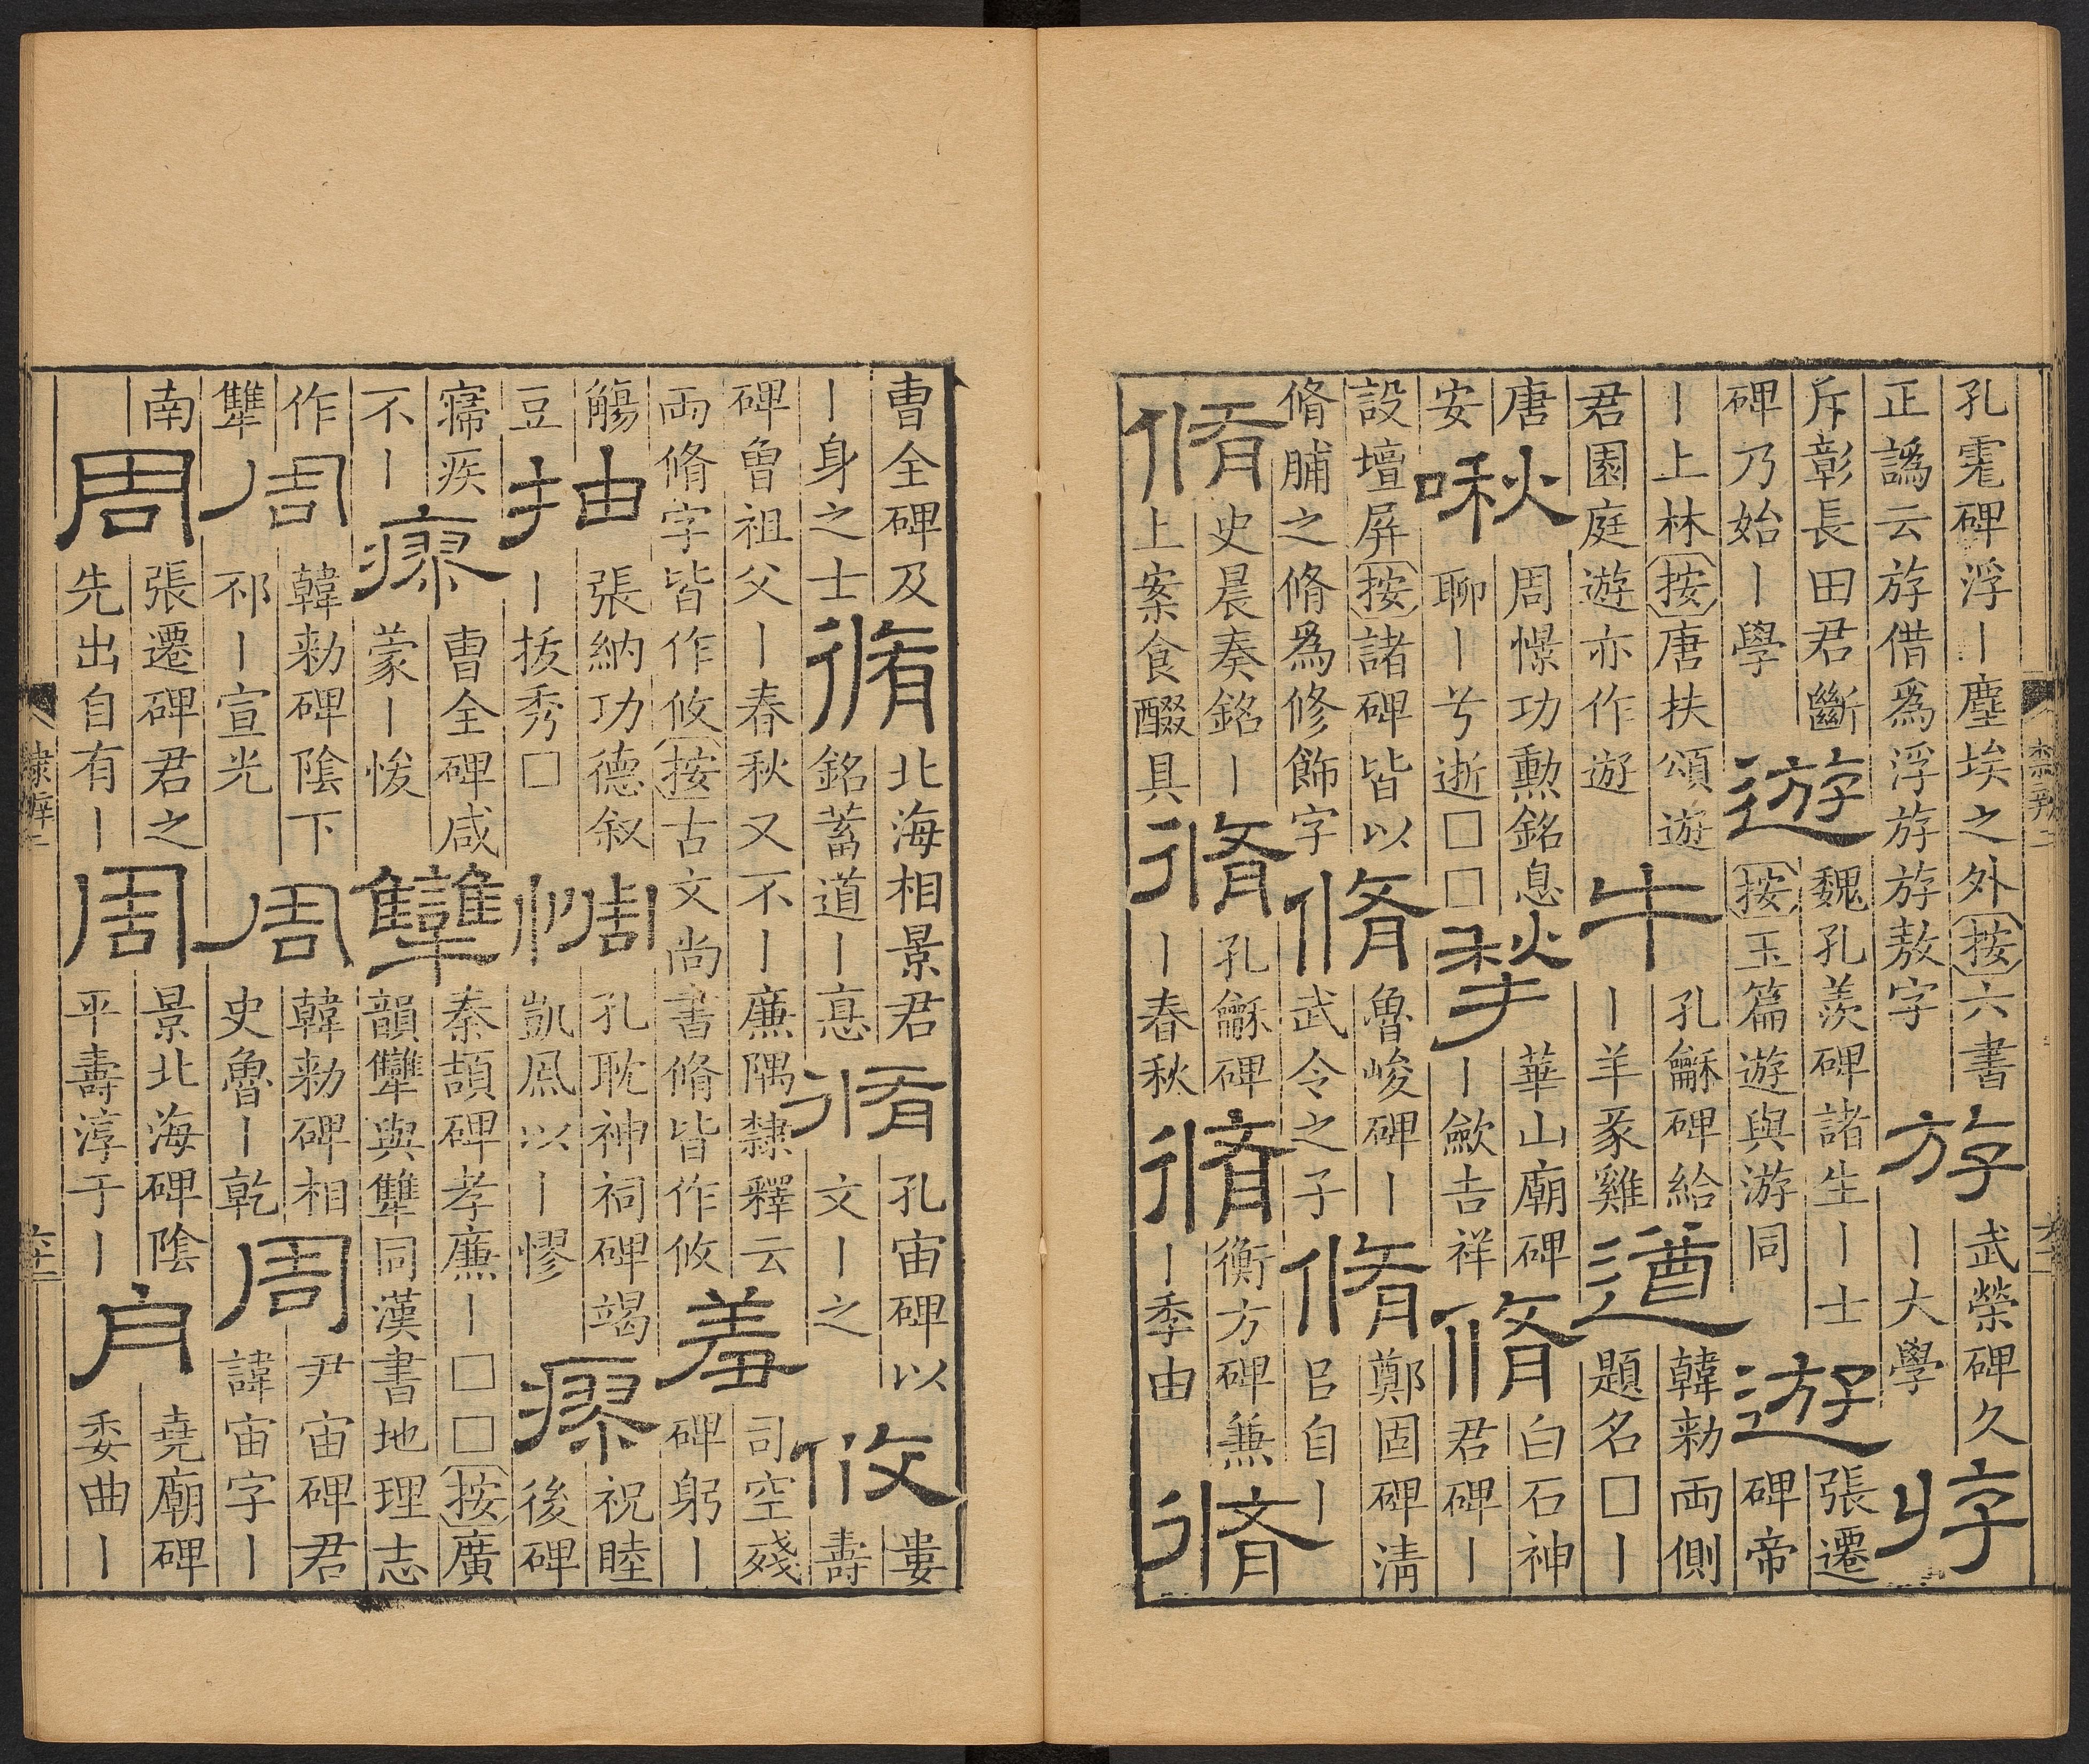 孔䨥碑浮丨塵埃之外按六書
正譌云斿借爲浮斿斿敖字
斿
武榮碑久
丨大學
斿
斥彰長田君斷
碑乃始丨學
遊
魏孔羨碑諸生丨士
按玉篇遊與游同
遊
張遷
碑帝
丨上林按唐扶頌遊
君園庭遊亦作遊
牛
孔龢碑給
丨羊豕雞
遒
韓勑兩側
題名□丨
唐
安
啾
周憬功勲銘息
聊丨兮逝□□
揫
華山廟碑
丨歛吉祥
脩
白石神
君碑丨
設壇屏按諸碑皆以
脩脯之脩爲修飾字
脩
魯峻碑丨
武令之子
脩
鄭固碑清
㠯自丨
脩
史晨奏銘丨
上案食醊具
脩
孔龢碑
丨春秋
脩
衡方碑兼
丨季由
脩
曹全碑及
丨身之士
脩
北海相景君
銘蓄道丨悳
脩
孔宙碑以
文丨之
攸
婁
壽
碑曾祖父丨春秋又不丨廉隅隸釋云
兩脩字皆作攸按古文尚書脩皆作攸
羞
司空殘
碑躬丨
觴
豆
抽
張納功德叙
丨拔秀□
惆
孔耽神祠碑竭
凱風以丨憀
瘳
祝睦
後碑
疾
不丨
瘳
曹全碑咸
蒙丨悛
犫
秦頡碑孝廉丨□□按廣
韻犫與犨同漢書地理志
作
犨
周
韓勑碑陰下
邳丨宣光
周
韓勑碑相
史魯丨乾
周
尹宙碑君
諱宙字丨
南
周
張遷碑君之
先出自有丨
周
景北海碑陰
平壽淳于丨
舟
堯廟碑
委曲丨
隸辨二